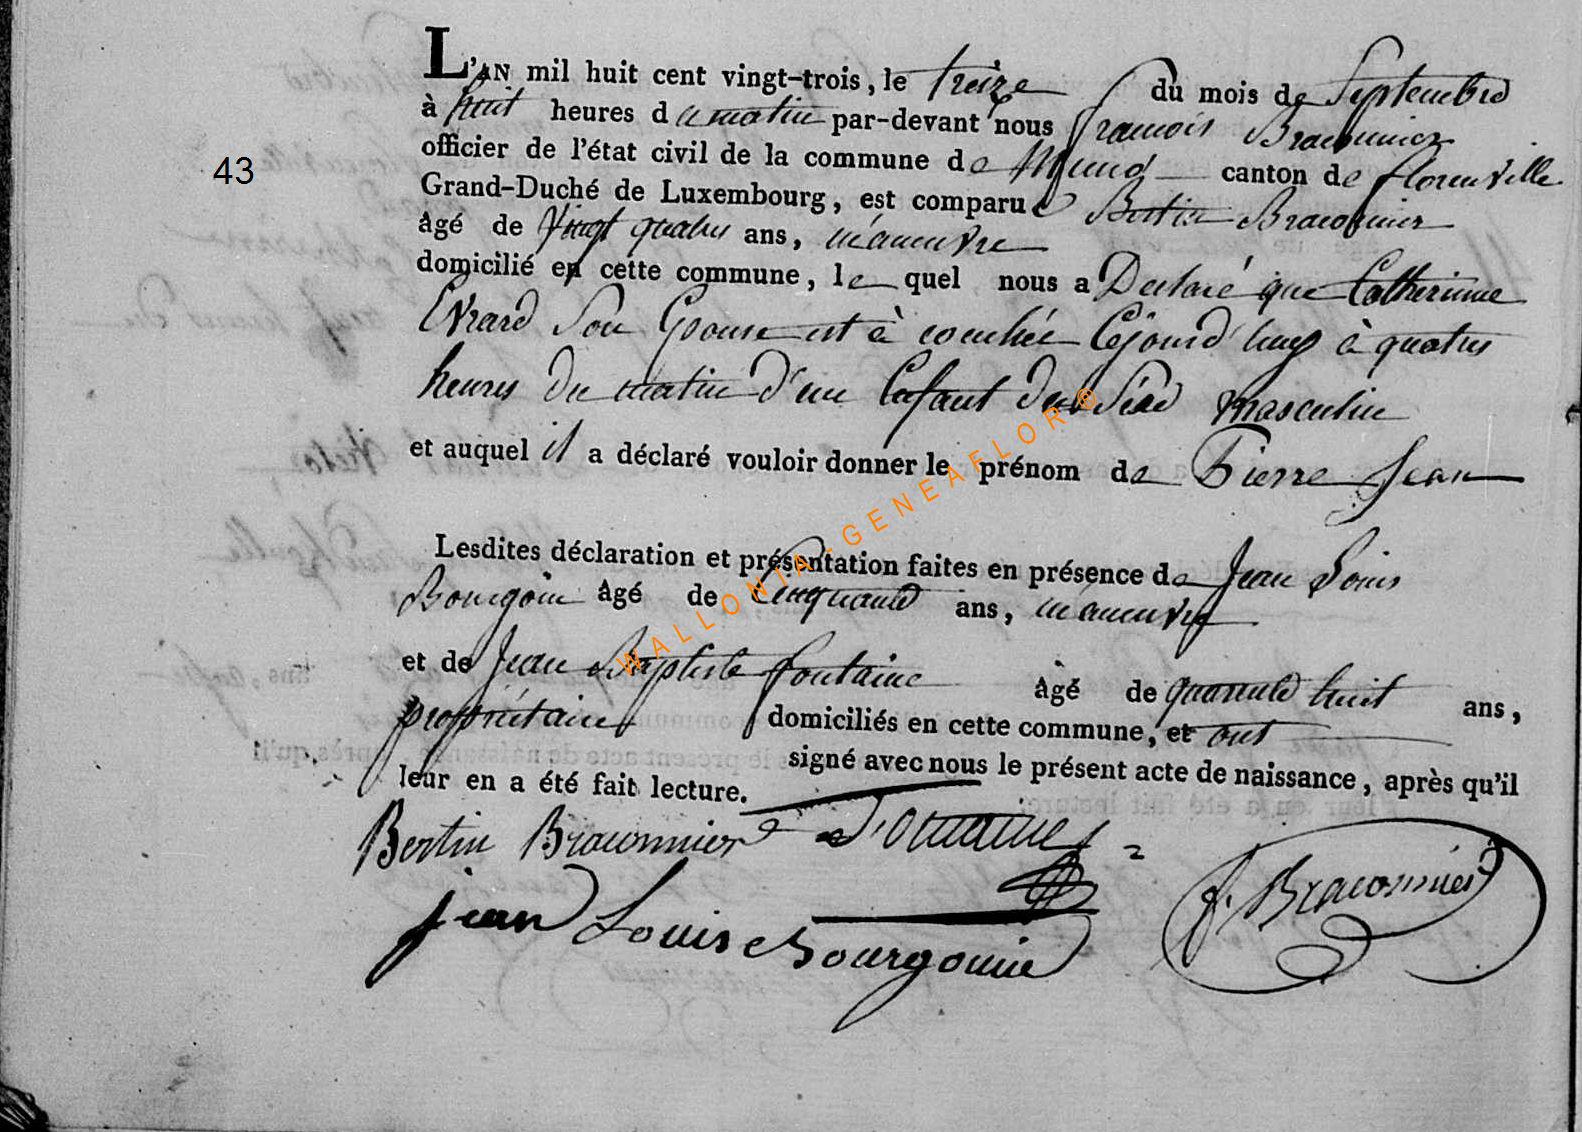 L'AN mil huit cent vingt-trois, le treize du mois de Septembre
à huit heures du matin par-devant nous francois Braconnier
43
officier de l'état civil de la commune de Muno canton de florenville
Grand-Duché de Luxembourg, est comparue Bertin Braconnier
âgé de Vingt quatres ans, manœuvre
domicilié en cette commune, le quel nous a Declaré que Catherinne
Evrard Son Epouse est à couchée Cejourd'huy à quatres
heures du matin d'un Enfant du Sexe masculin
et auquel il a déclaré vouloir donner le prénom de Pierre Jean
WALLONIA-GENEAFLOR®
Lesdites déclaration et présentation faites en présence de Jean Louis
Bourgoin âgé de Cinquante ans, manœuvre
et de Jean Baptiste fontaine âgé de quarante huit ans,
propriétaire domiciliés en cette commune, et ont
signé avec nous le présent acte de naissance, après qu'il
leur en a été fait lecture.
Bertin Braconnier
jean Louis Bourgouin
f. Braconnier